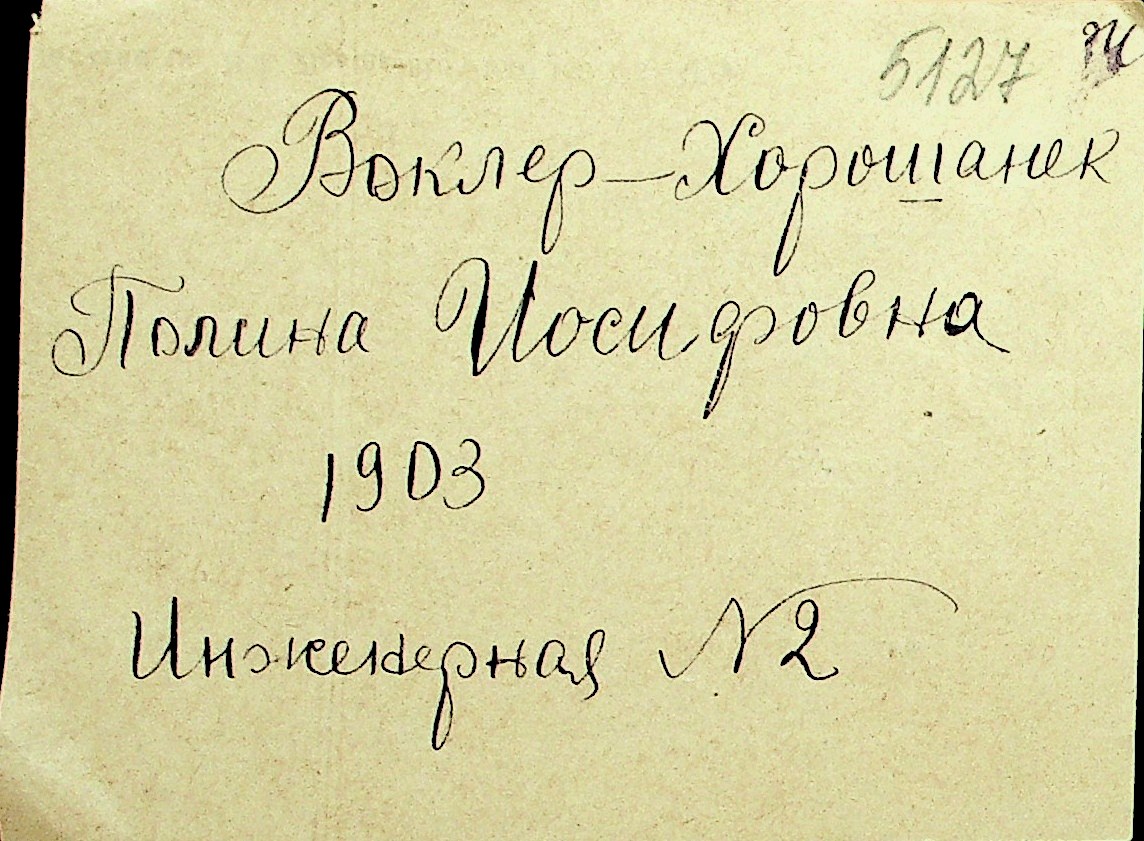 5127
Воклер-Хорошанек
Полина Иосифовна
1903
Инженерная №2